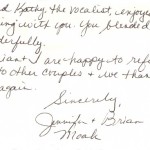 d Kathy, the vocalist, enjoye
ing with you. You blended
derfully.
rian & I are happy to refe
to other couples & we than
again.
Sincerely,
Jennifer & Brian
Moak